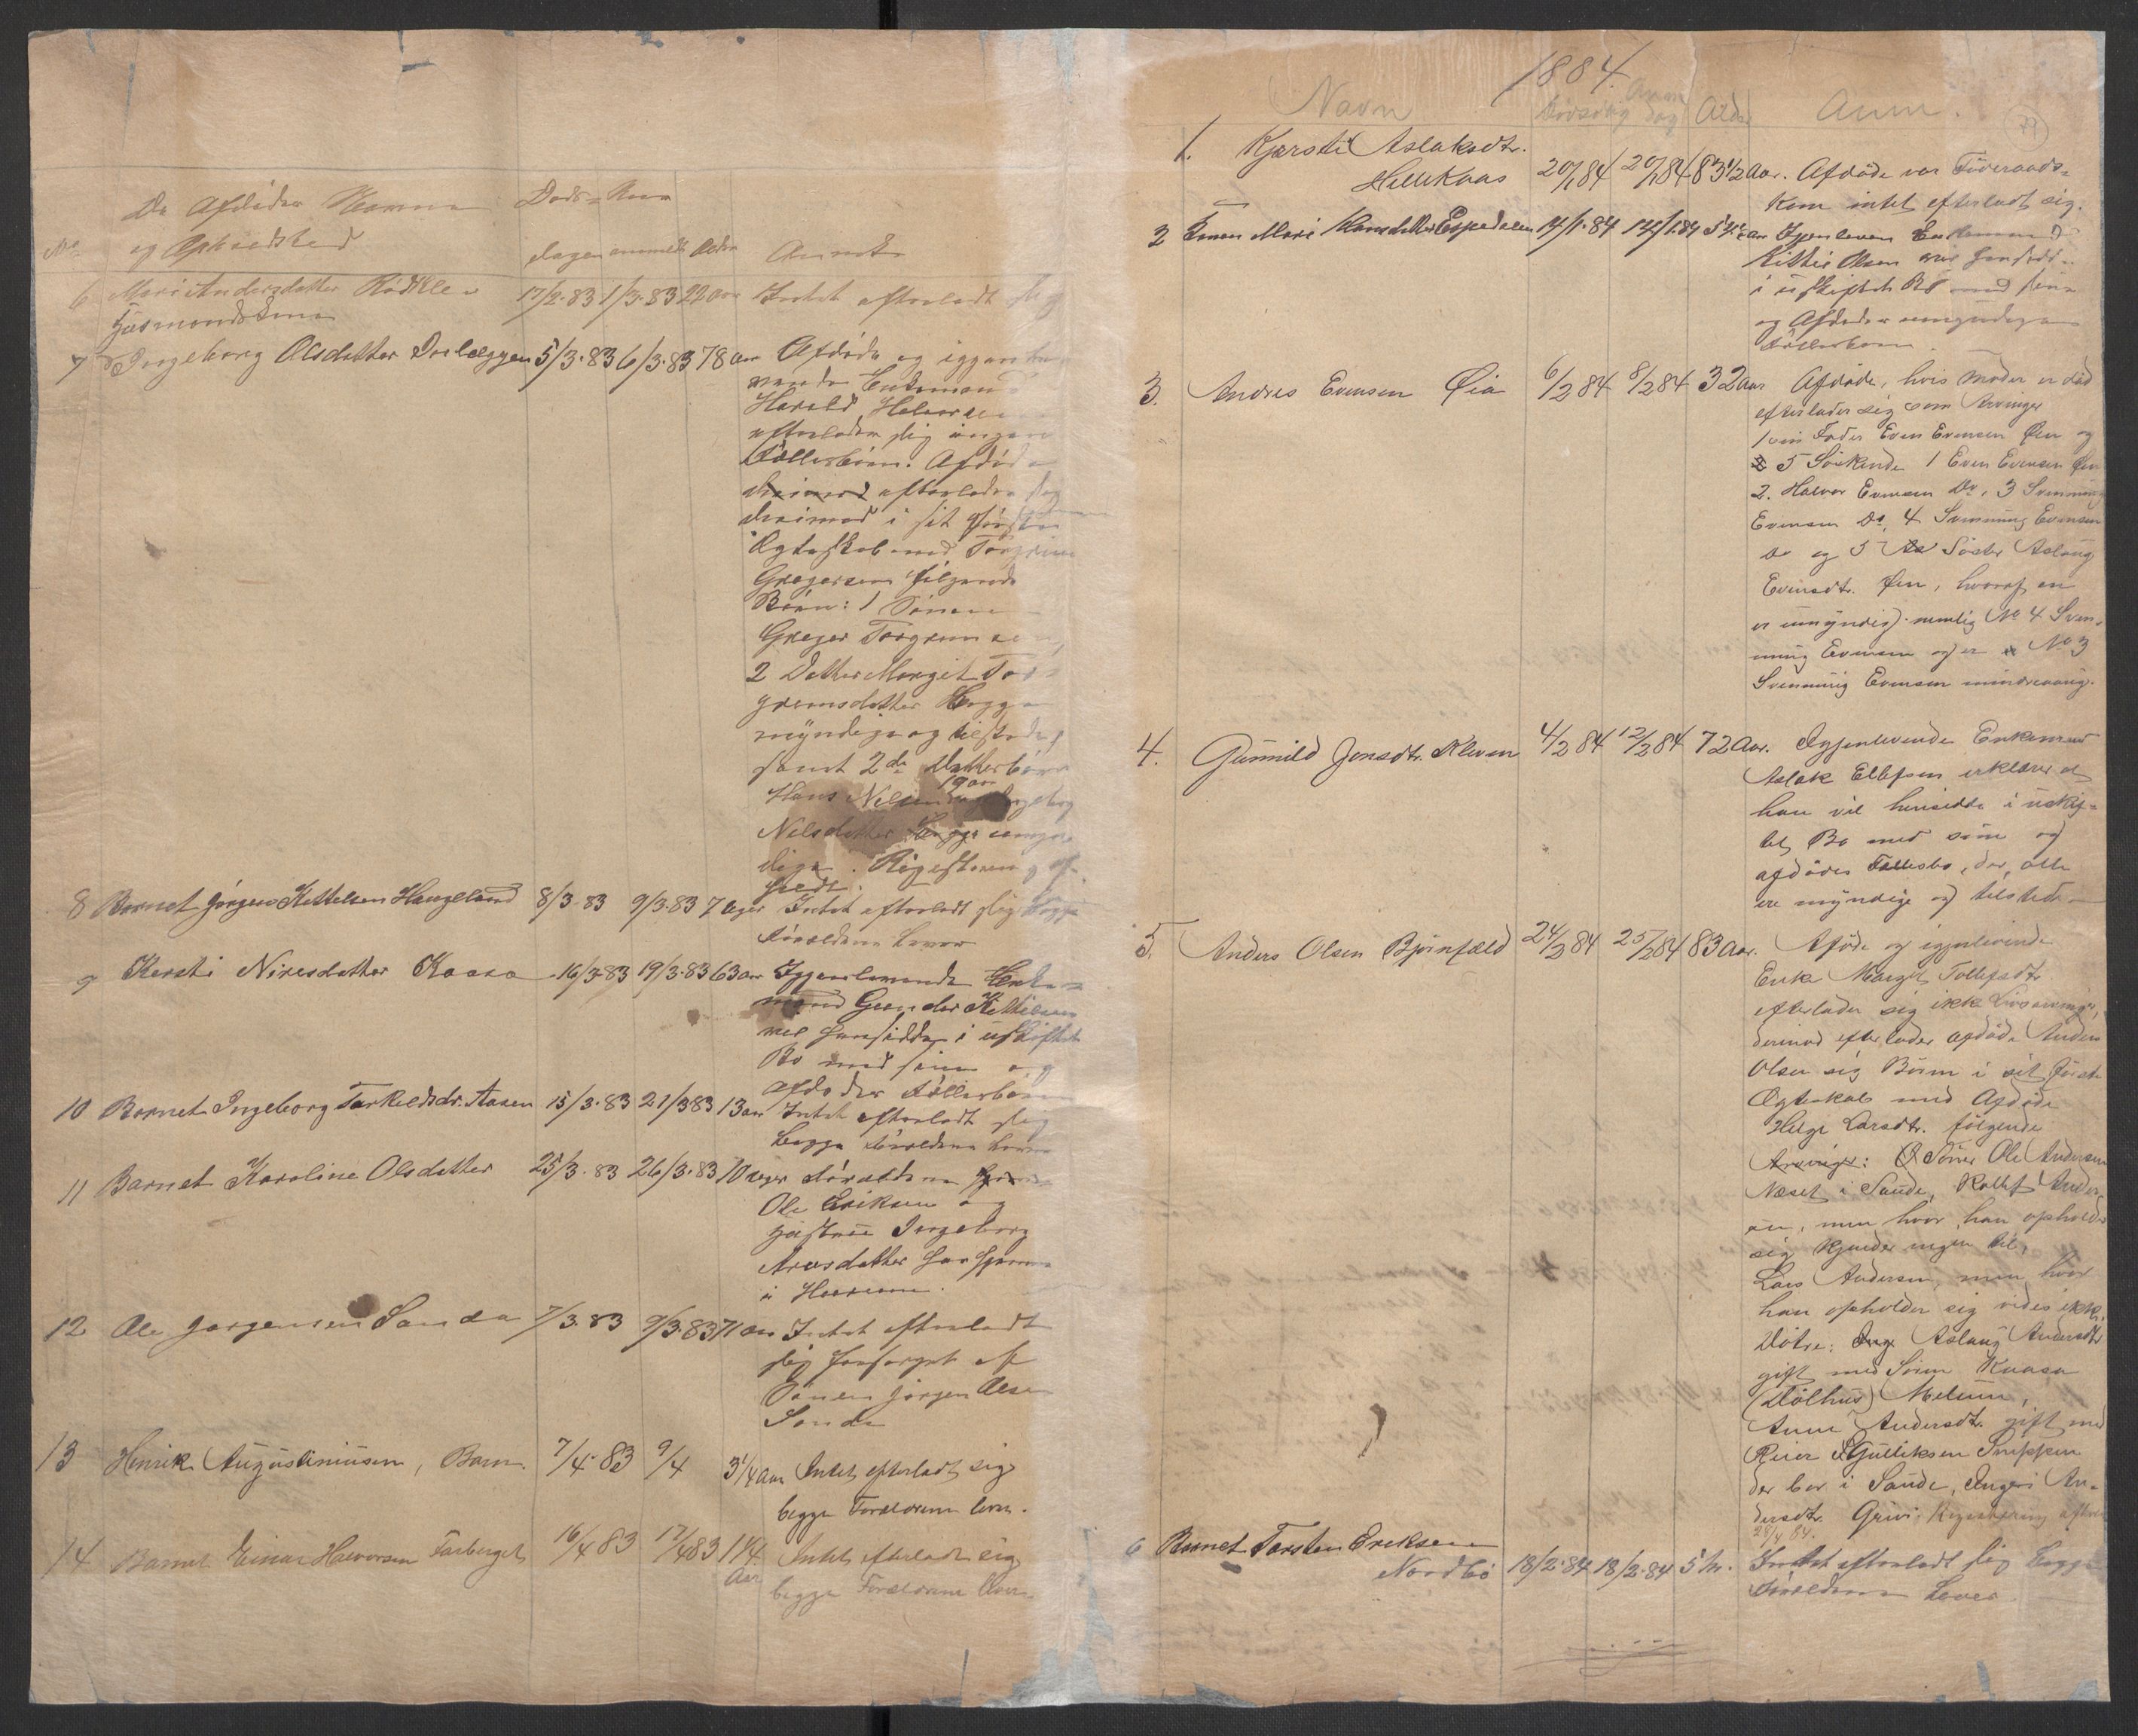 De Afdødes Navne
Døds- Anm
No og Opholdsted
dagen anmeldt Alder Anmk
6 Mari Andersdatter Rødkle 17/2.83 1/3.83 22 aar Intet efterladt sig
Huusmandskone
7 Ingeborg Olsdatter 5/3.83 6/3.83 78 aar Afdøde og igjenle-
vende Enkemand
Harald Halvorsen
efterlader sig ingen
Fællesbørn. Afdøde
derimod efterlader sig
derimod i sit første
Ægteskab med Torgrim
Gregersen følgende
Børn: 1 Sønen
Greger Torgrimsen
2 Datter Margit Tor-
grimsdatter Begge
myndige og tilstede
samt 2de Datterbørn
19 aar
Hans Nilsen Ingeborg
Nilsdatter begge umyn-
dige. Registrering af-
holdt.
8 Barnet Jørgen Kittelsen Haugeland 8/3.83 9/3.83 7 uger Intet efterladt sig begge
Forældrene lever
9 Kersti Nirisdatter Kaasa 16/3.83 19/3.83 63 aar Igjenlevende Enke-
mand Gunder Kittilsen
vil hensidde i uskiftet
Bo med sine og
Afdødes Fællesbørn
10 Barnet Ingeborg Torkildsdr. Aasen 15/3.83 21/3.83 13 aar Intet efterladt sig
begge Forældrene lever
11 Barnet Karoline Olsdatter 25/3.83 26/3.83 10 uger Forældrene
Ole Eriksen og
Hustru Ingeborg
Aresdatter har hjemme
i
12 Ole Jørgensen Sanda 7/3.83 9/3.83 71 aar Intet efterladt
sig forsørget af
Sønen Jørgen Olsen
Sanda
13 Henrik Augustiniusen, Barn. 7/4.83 9/4 3 1/4 aar Intet efterladt sig
begge Forældrene lever.
14 Barnet Einar Halvorsen Farberget 16/4 83 17/4 83 1 1/4
Aar Intet efterladt sig
begge Forældrene lever.
1884.
Navn Dødsdag Anm dag Alder Anm.
79
1. Kjersti Aslaksdtr.
20/1 84 20/1 84 83 1/2 Aar. Afdøde var Føderaads-
Kone intet efterladt sig.
2 Mari Hansdatter Espedalen 14/1.84 14/1.84 aar Igjenlevende Enkemand
Kittil Olsen vil hensidde
i uskiftet Bo med sine
og Afdødes umyndige
Fællesbørn.
3. Andres Evensen Øia 6/2 84 8/2 84 32 aar Afdøde, hvis Moder er død
efterlader sig som Arvinger
1 sin Fader Even Evensen Øen og
5 Søskende 1 Even Evensen Øen
2. Halvor Evensen Do, 3 Svenning
Evensen Do, 4 Svenning Evensen
Do og 5 Søster Aslaug
Evensdtr. Øen, hvoraf en
er umyndig. nemlig No 4 Sven-
ning Evensen og er No 3
Svenning Evensen mindreaarig.
4. Gunnild Jonsdtr. Kleven 4/2 84 12/2 84 72 Aar. Igjenlevende Enkemand
Aslak Ellefsen erklærer at
han vil hensidde i uskif-
tet Bo med sine og
afdødes Fællesbo, der alle
ere myndige og tilstede
5. Anders Olsen Bjørnfæld 24/2 84 25/2 84 83 Aar. Afdøde og igjenlevende
Enke Margit Tollefsdtr
efterlader sig ikke Livsarving,
derimod efterlader afdøde Anders
Olsen sig Børn i sit første
Ægteskab med Afdøde
Helge Larsdtr. følgende
Arvinger: Sønner Ole Andersen
Næset i Saude, Rollef Ander-
sen, men hvor han opholder
sig Kjender ingen til,
Lars Andersen, men hvor
han opholder sig vides ikke.
Døtre: Aslaug Andersdtr
gift med Søren Kaasa
(Dølhus) Melum,
Anne Andersdtr. gift med
Reier Gulliksen Snippen
der bor i Saude, Ingeri An-
dersdtr. Grivi. Registrering afhol
28/4 84.
6 Barnet Torsten Eriksen
Nordbø 18/2.84 18/2.84 5 Intet efterladt sig begge
Forældrene Lever